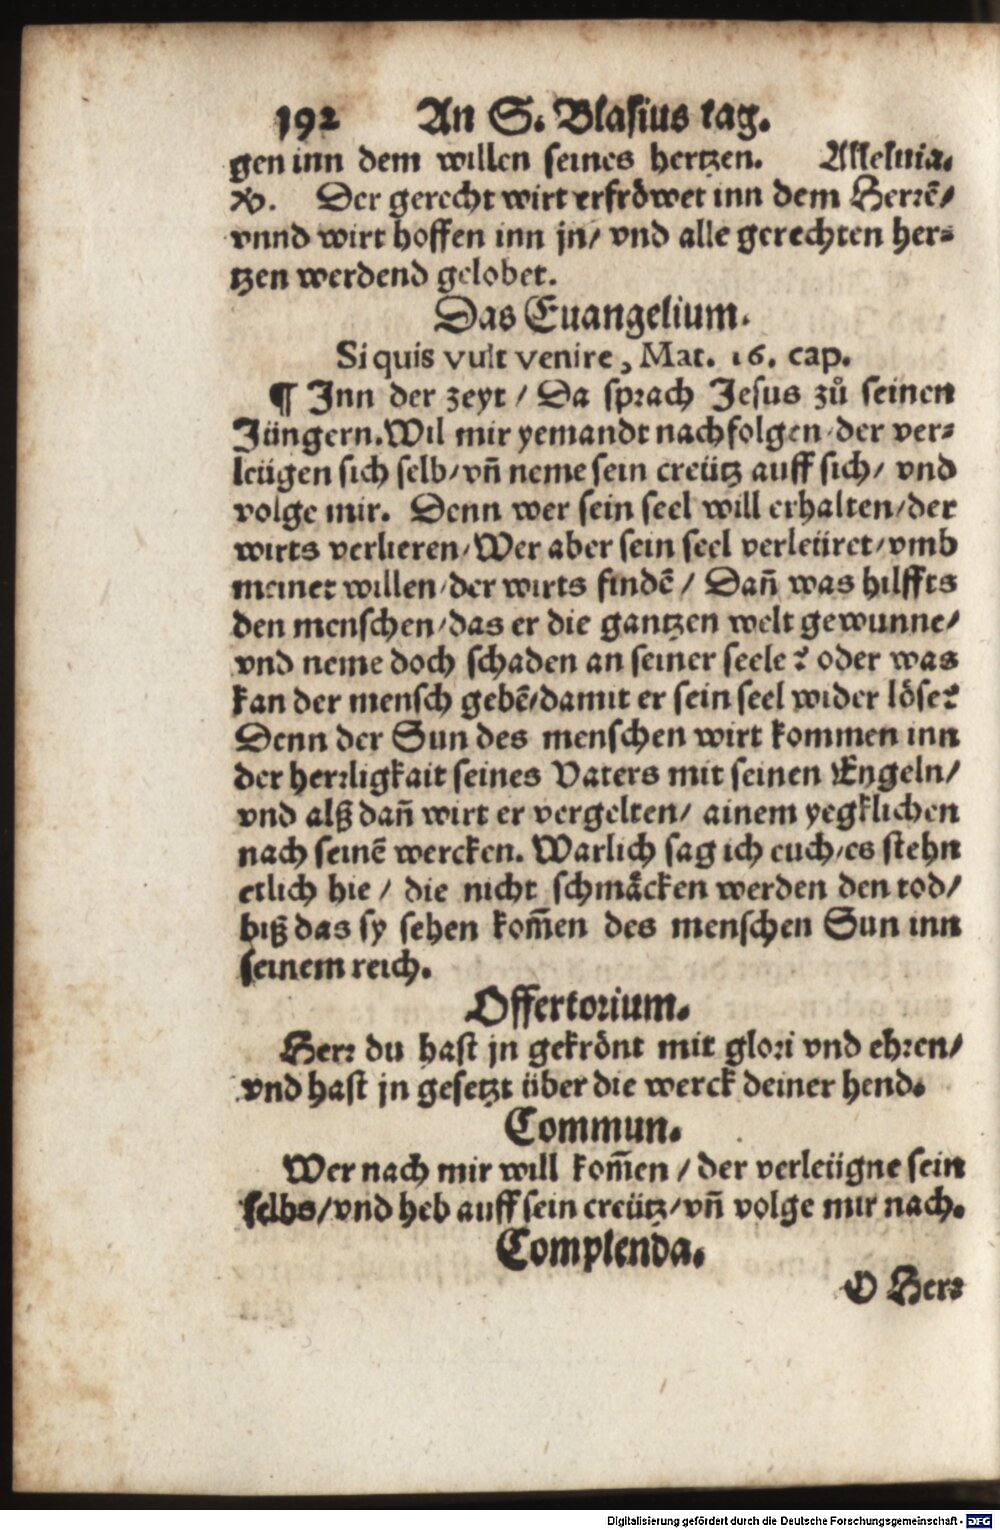 192 An S. Blasius tag.
gen inn dem willen seines hertzen. Alleluia.
℣. Der gerecht wirt erfröwet inn dem Herrē/
vnnd wirt hoffen inn jn/ vnd alle gerechten her⸗
tzen werdend gelobet.
Das Euangelium.
Si quis vult venire, Mat. 16. cap.
¶ Inn der zeyt / Da sprach Jesus zů seinen
Jüngern. Wil mir yemandt nachfolgen der ver⸗
leügen sich selb/ vñ neme sein creütz auff sich/ vnd
volge mir. Denn wer sein seel will erhalten/ der
wirts verlieren/ Wer aber sein seel verleüret/ vmb
meinet willen/ der wirts findē / Dañ was hilffts
den menschen/ das er die gantzen welt gewunne/
vnd neme doch schaden an seiner seele? oder was
kan der mensch gebē/ damit er sein seel wider löse?
Denn der Sun des menschen wirt kommen inn
der herrligkait seines Vaters mit seinen Engeln/
vnd alß dañ wirt er vergelten/ ainem yegklichen
nach seinē wercken. Warlich sag ich euch/ es stehn
etlich hie / die nicht schmäcken werden den tod/
biß das sy sehen kom̃en des menschen Sun inn
seinem reich.
Offertorium.
Herr du hast jn gekrönt mit glori vnd ehren/
vnd hast jn gesetzt über die werck deiner hend.
Commun.
Wer nach mir will kom̃en / der verleügne sein
selbs/ vnd heb auff sein creütz/ vñ volge mir nach.
Complenda.
O Herr
Digitalisierung gefördert durch die Deutsche Forschungsgemeinschaft - DFG